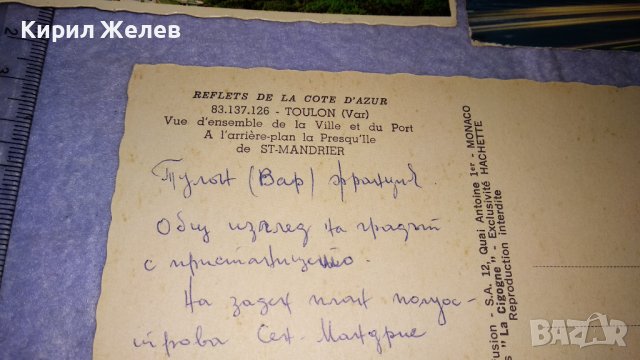 Кирил Желев
REFLETS DE LA COTE D'AZUR
83.137.126 - TOULON (Var)
Vue d'ensemble de la Ville et du Port
A l'arrière-plan la Presqu'Ile
de ST-MANDRIER
Тулон (Вар) франция.
Общ изглед на градът
с пристанището.
На заден план полуос-
трова Сен-Мандрие
usion - S.A. 12, Quai Antoine 1er - MONACO
s "La Cigogne" - Exclusivité HACHETTE
Reproduction interdite
2
3
BAZAR
bg